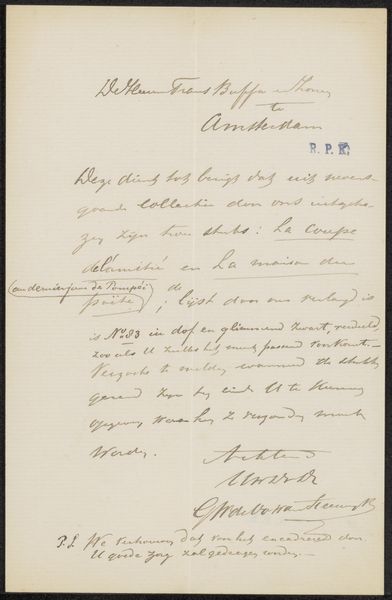 De Heeren Frans Buffa en Zonen
te
Amsterdam
R.P.K.
Deze dient tot berigt dat uit nevens
gaande collectie door ons uitgeko
zen zijn twee stuks: La coupe
de l'amitié en La maison du
(au dernier jour de Pompéï)
poëte; de lijst door ons verlangd is
is No. 83 in dof en glimmend zwart, verguld,
zoo als U zulks het meest passend voorkomt.
Verzoeke te melden wanneer de stukken
gereed zijn
U te kunnen
opgeven waarheen ze verzonden moeten
worden.
Achtend
UWEDD
G W de Vos van Steenwijk
P.S. We vertrouwen dat voor het encadreeren door
U goede zorg zal gedragen worden.